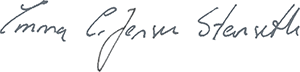 Emma C. Jensen Stenseth